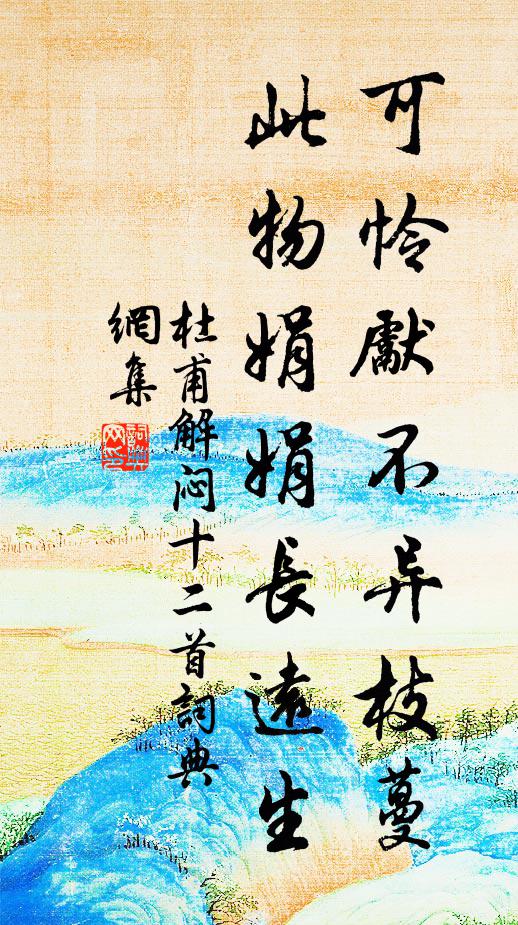 可怜獻不异枝蔓
此物娟娟長遠生
杜甫解闷十二首詞典
網集